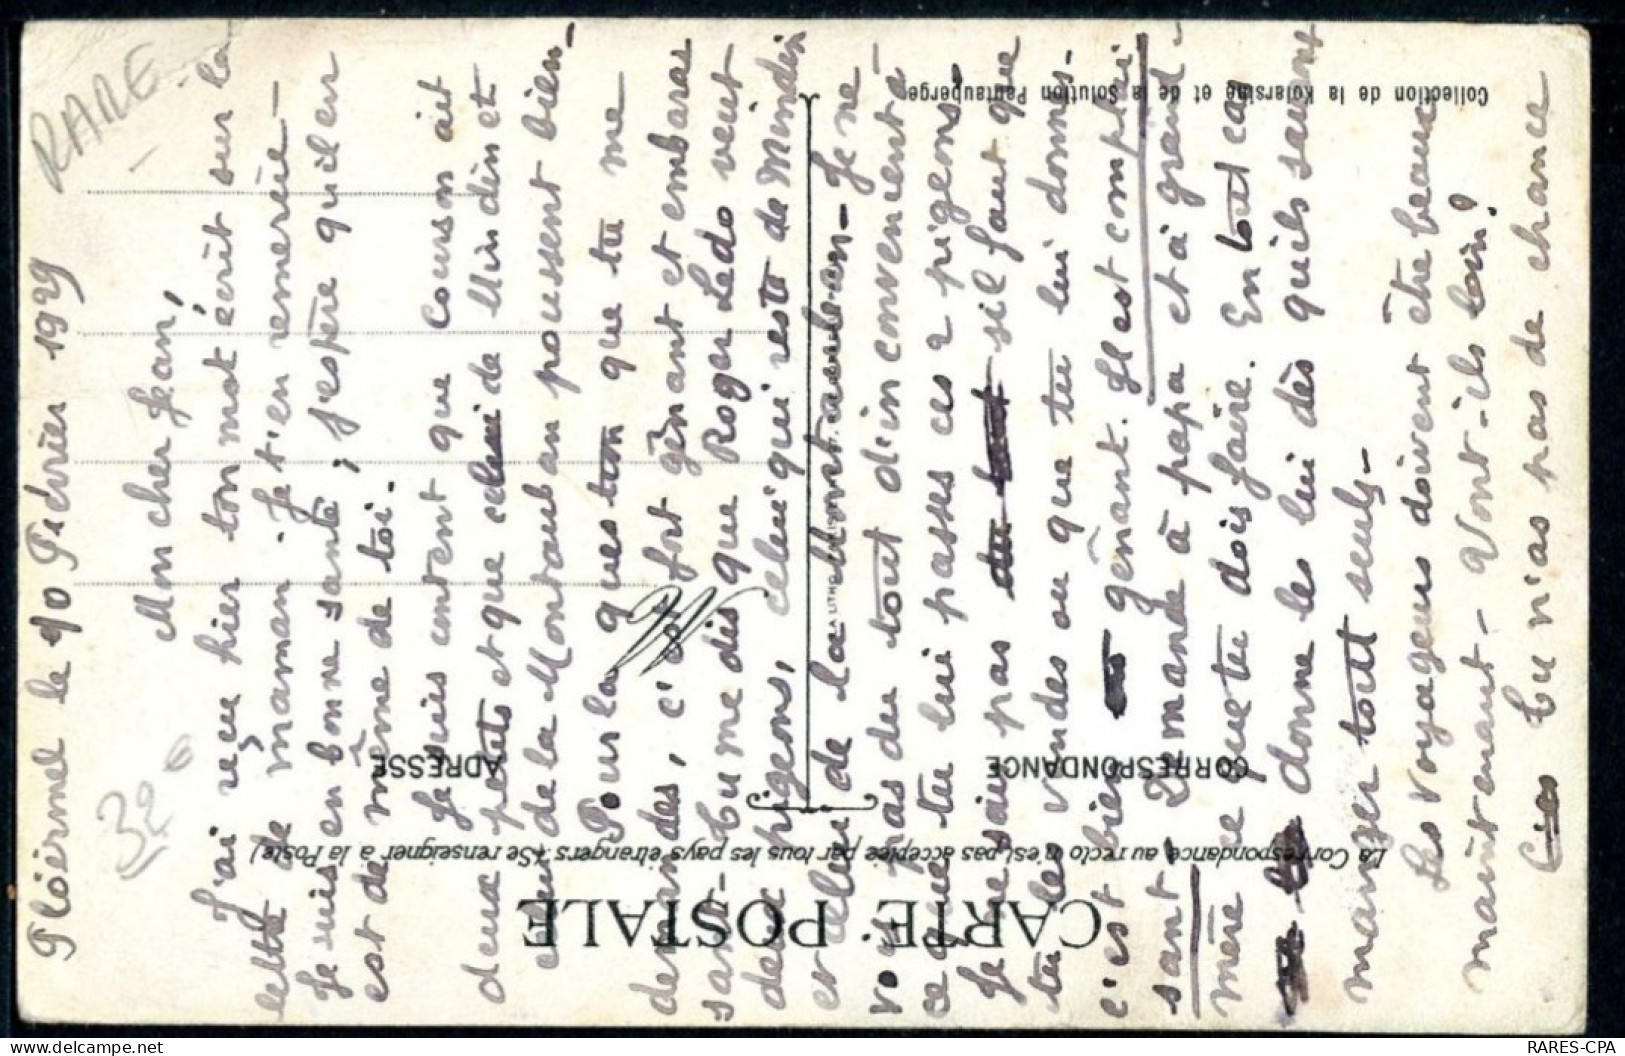 Ploërmel le 10 Février 1929
Mon cher Jean,
J'ai reçu hier ton mot écrit sur la
lettre de maman. Je t'en remercie –
Je suis en bonne santé ; j'espère qu'il en
est de même de toi.
Je suis content que Courson ait
deux petits et que celui de Mindin et
celui de la Montauban poussent bien –
Pour la question que tu me
demandes, c'est fort gênant et embaras
sant – Tu me dis que Roger Ledo veut
deux pigeons, celui qui reste de Mindin
et celui de la Montauban – Je ne
vois pas du tout d'inconvenient à
ce que tu lui passes ces 2 pigeons.
Je ne sais pas s'il faut que
tu les vendes ou que tu lui donnes –
c'est bien gênant. Il est complai-
sant. Demande à papa et à grand-
mère ce que tu dois faire. En tout cas
donne les lui dès qu'ils sauront
manger tout seuls –
Les voyageurs doivent être beaux
maintenant – Vont-ils loin ?
Tu n'as pas de chance
RARE
32
CARTE POSTALE
La Correspondance au recto n'est pas acceptée par tous les pays étrangers (Se renseigner à la Poste)
CORRESPONDANCE
ADRESSE
Collection de la Kolarsine et de la Solution Pautauberge
RARES-CPA